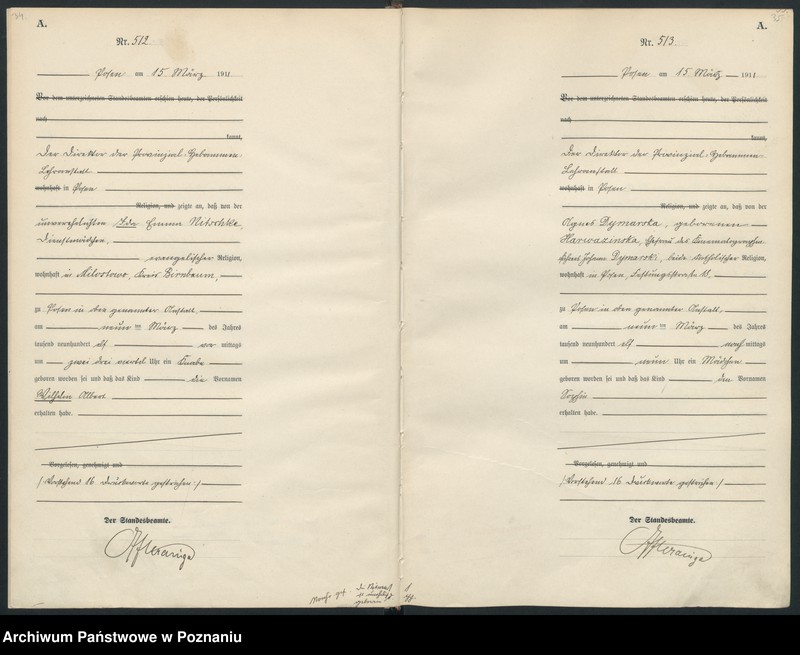 A.
Nr. 512
Posen am 15. März 1911
Vor dem unterzeichneten Standesbeamten erschien heute, der Persönlichkeit
nach
kannt,
Der Direktor der Provinzial-Hebammen-
Lehranstalt
wohnhaft in Posen
Religion, und zeigte an, daß von der
unverehelichten Ida Emma Nitschke,
Dienstmädchen,
evangelischer Religion,
wohnhaft in Milostowo, Kreis Birnbaum,
zu Posen in oben genannter Anstalt,
am neunten März des Jahres
tausend neunhundert elf vor mittags
um zwei drei viertel Uhr ein Knabe
geboren worden sei und daß das Kind die Vornamen
Wilhelm Albert
erhalten habe.
Vorgelesen, genehmigt und
/Vorstehend 16 Druckworte gestrichen/
Der Standesbeamte.
A.
Nr. 513.
Posen am 15. März 1911
Vor dem unterzeichneten Standesbeamten erschien heute, der Persönlichkeit
nach
kannt,
Der Direktor der Provinzial-Hebammen-
Lehranstalt
wohnhaft in Posen
Religion, und zeigte an, daß von der
Agnes Dymarska, geborenen
Harwazinska, Ehefrau des
Dymarski, beide katholischer Religion,
wohnhaft in Posen,
zu Posen in oben genannter Anstalt,
am neunten März des Jahres
tausend neunhundert elf nach mittags
um neun Uhr ein Mädchen
geboren worden sei und daß das Kind den Vornamen
Sophie
erhalten habe.
Vorgelesen, genehmigt und
/Vorstehend 16 Druckworte gestrichen/
Der Standesbeamte.
Archiwum Państwowe w Poznaniu